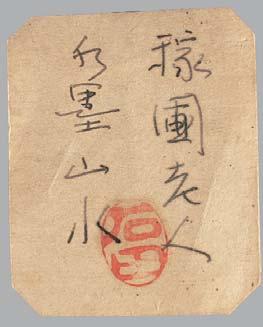 稼圃老人
水墨山水